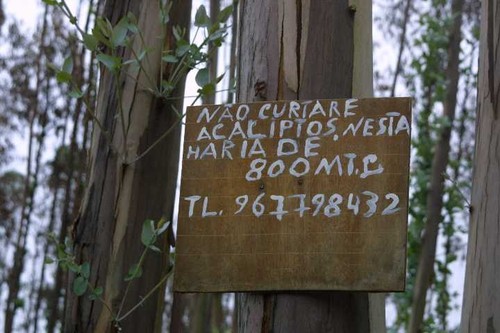 NÃO CURTARE
ACALIPTOS, NESTA
HARIA DE
800MT.2
TL. 967798432